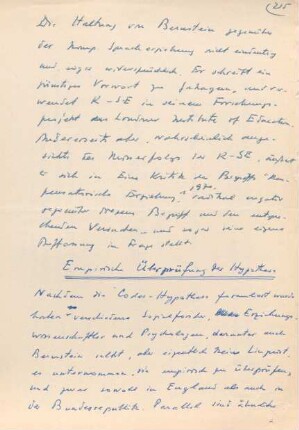 215
Die Haltung von Bernstein gegenüber
der komp. Spracherziehung nicht eindeutig
und sogar widersprüchlich. Er schreibt ein
günstiges Vorwort zu Gahagan, und ver-
wendet R-SE in seinem Forschungs-
projekt des Londoner Institute of Education.
Andererseits aber, wahrscheinlich ange-
sichts des Misserfolgs der K-SE, äußert
er sich in Eine Kritik des Begriffs "Kom-
pensatorische Erziehung", 1970. radikal negativ
gegenüber diesem Begriff und den entspre-
chenden Verfahren und sogar seine eigene
Auffassung in Frage stellt.
Empirische Überprüfung der Hypothese
Nachdem die Codes-Hypothese formuliert wurde
haben verschiedene Sozialforscher, Erziehungs-
wissenschaftler und Psychologen, darunter auch
Bernstein selbst, aber eigentlich keine Linguist,
es unternommen, sie empirisch zu überprüfen,
und zwar sowohl in England als auch in
der Bundesrepublik. Parallel sind ähnliche